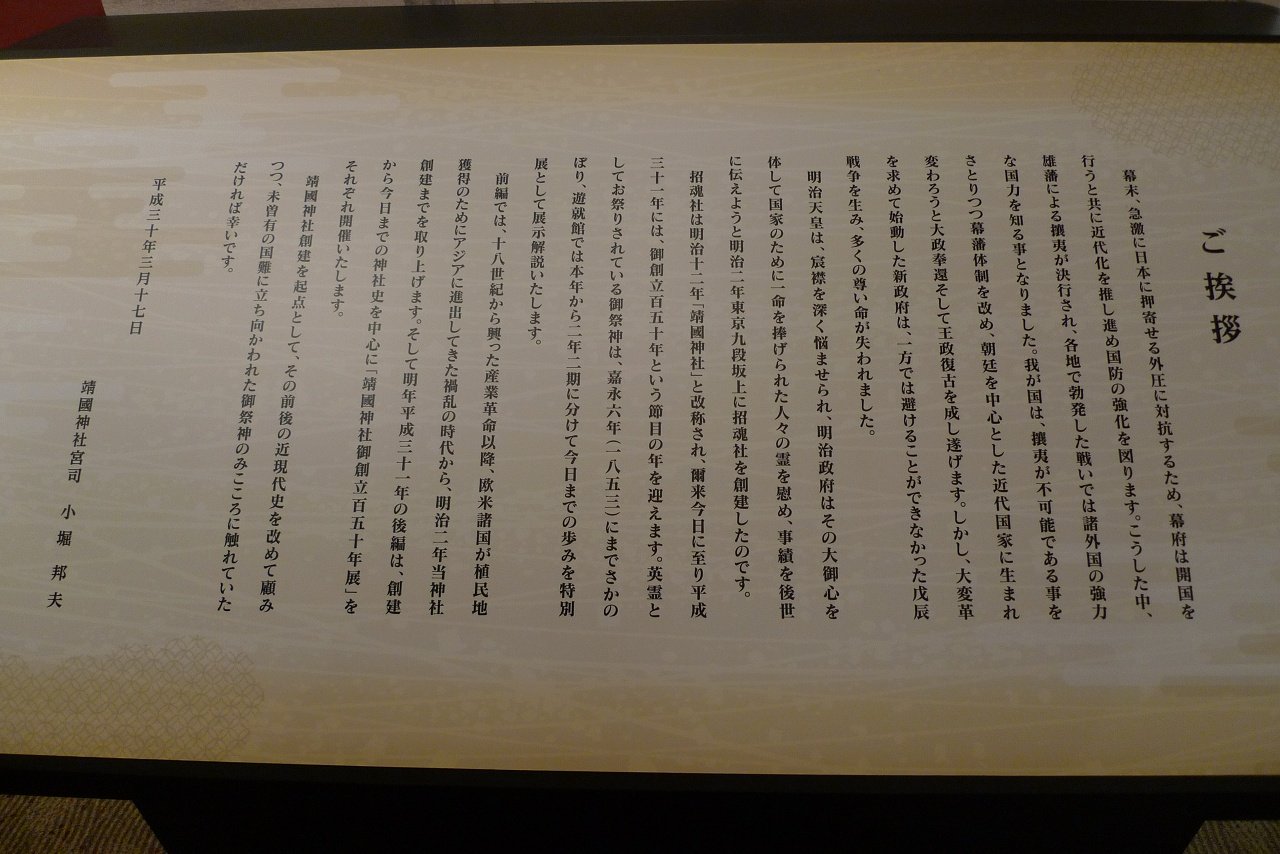 ご挨拶
幕末、急激に日本に押寄せる外圧に対抗するため、幕府は開国を
行うと共に近代化を推し進め国防の強化を図ります。こうした中、
雄藩による攘夷が決行され、各地で勃発した戦いでは諸外国の強力
な国力を知る事となりました。我が国は、攘夷が不可能である事を
さとりつつ幕藩体制を改め、朝廷を中心とした近代国家に生まれ
変わろうと大政奉還そして王政復古を成し遂げます。しかし、大変革
を求めて始動した新政府は、一方では避けることができなかった戊辰
戦争を生み、多くの尊い命が失われました。
明治天皇は、宸襟を深く悩ませられ、明治政府はその大御心を
体して国家のために一命を捧げられた人々の霊を慰め、事績を後世
に伝えようと明治二年東京九段坂上に招魂社を創建したのです。
招魂社は明治十二年「靖國神社」と改称され、爾来今日に至り平成
三十一年には、御創立百五十年という節目の年を迎えます。英霊と
してお祭りされている御祭神は、嘉永六年(一八五三)にまでさかの
ぼり、遊就館では本年から二年二期に分けて今日までの歩みを特別
展として展示解説いたします。
前編では、十八世紀から興った産業革命以降、欧米諸国が植民地
獲得のためにアジアに進出してきた禍乱の時代から、明治二年当神社
創建までを取り上げます。そして明年平成三十一年の後編は、創建
から今日までの神社史を中心に「靖國神社御創立百五十年展」を
それぞれ開催いたします。
靖國神社創建を起点として、その前後の近現代史を改めて顧み
つつ、未曽有の国難に立ち向かわれた御祭神のみこころに触れていた
だければ幸いです。
平成三十年三月十七日
靖國神社宮司 小堀邦夫